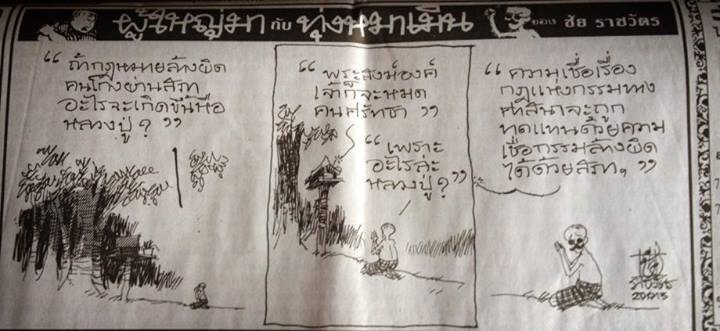 ผู้ใหญ่มา กับ ทุ่งหมาเมิน ของ ชัย ราชวัตร
“ ถ้ากฎหมายล้างผิด
คนโกงผ่านสภา
อะไรจะเกิดขึ้นหือ
หลวงปู่? ”
“ พระสงฆ์องค์
เจ้าก็จะหมด
คนศรัทธา ”
“ เพราะ
อะไรล่ะ
หลวงปู่? ”
“ ความเชื่อเรื่อง
กฎแห่งกรรมทาง
ศาสนาจะถูก
ทดแทนด้วยความ
เชื่อกรรมล้างผิด
ได้ด้วยสภาฯ ”